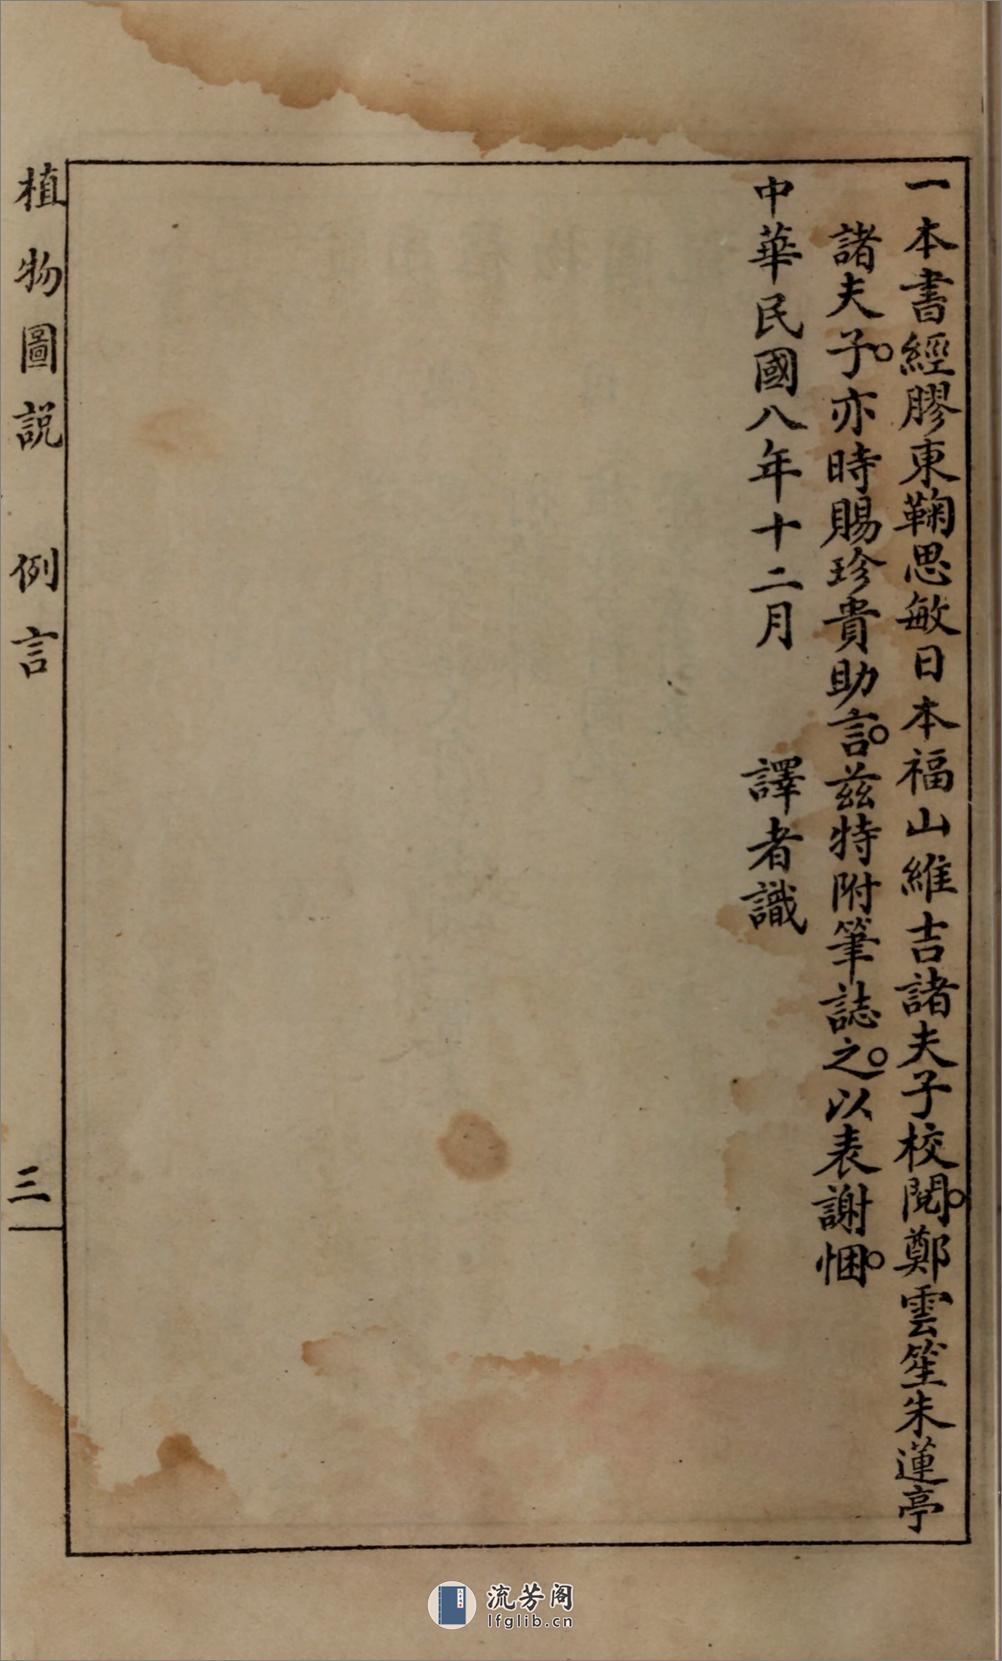 一本書經膠東鞠思敏日本福山維吉諸夫子校閱。鄭雲笙朱蓮亭
諸夫子。亦時賜珍貴助言。茲特附筆誌之。以表謝悃。
中華民國八年十二月　譯者識
植物圖説　例言　三
流芳阁
lfglib.cn